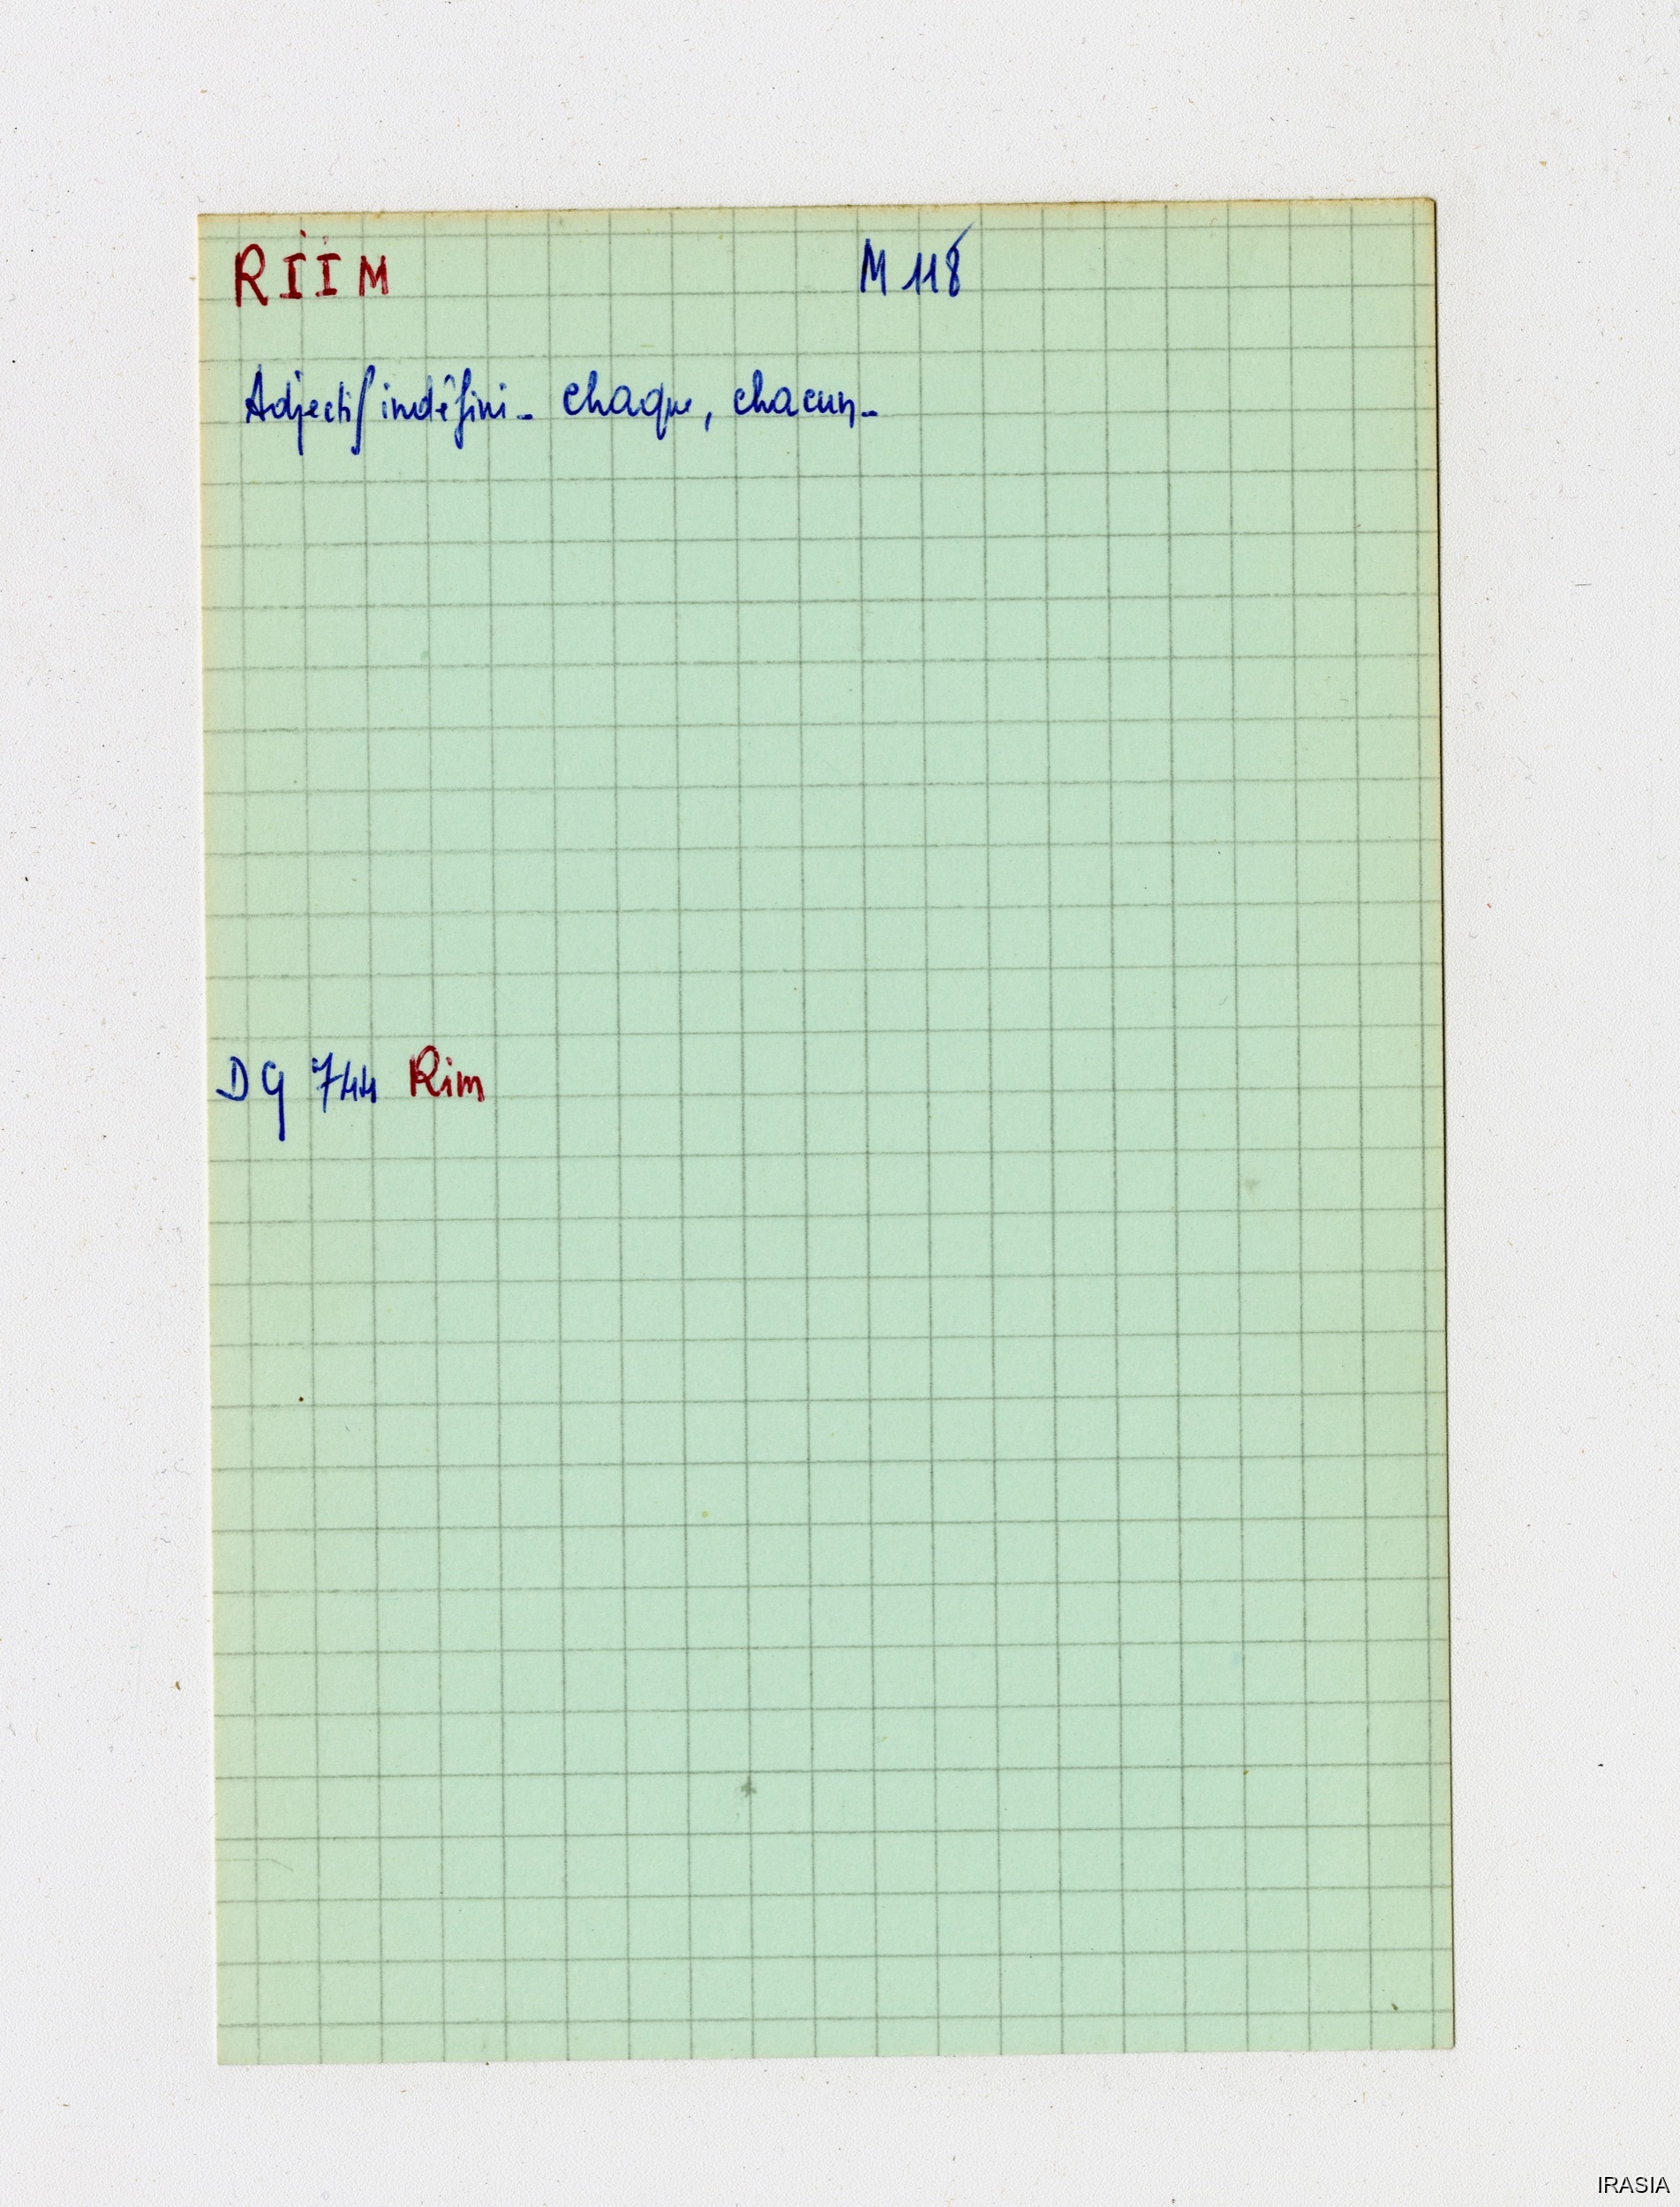 RIIM M 118
Adjectif indéfini - chaque, chacun -
DG 744 Rim
IRASIA